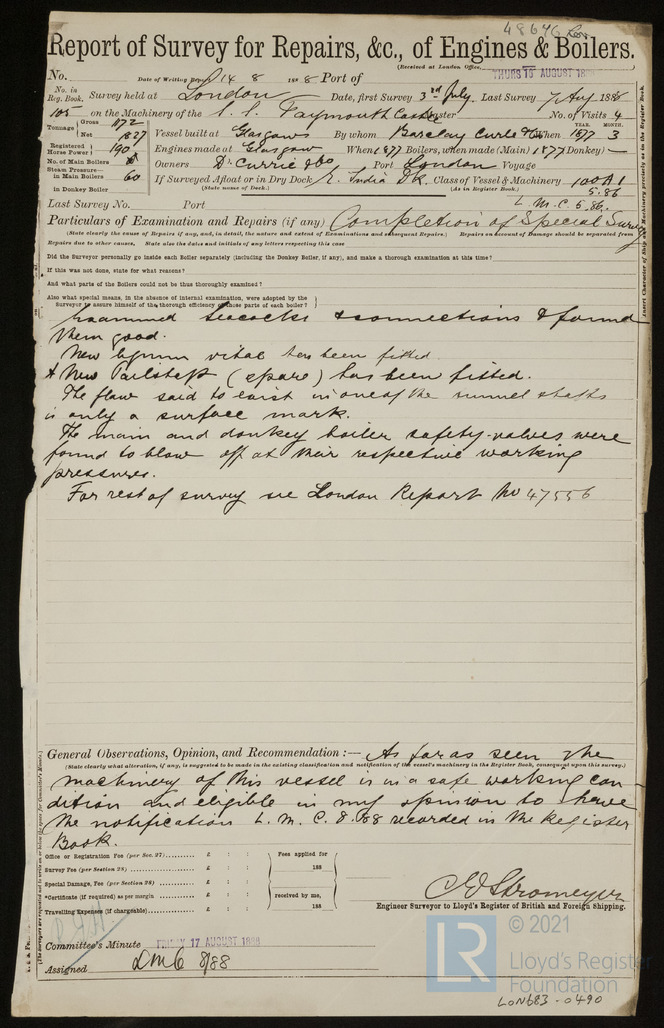 48646 Lon
Report of Survey for Repairs, &c., of Engines & Boilers.
(Received at London Office, THURS 16 AUGUST 18
No. Date of Writing Report 14 8 1888 Port of
No. in Reg. Book. Survey held at London Date, first Survey 3rd July. Last Survey 7 Aug 1888
105 on the Machinery of the S. S. Taymouth Castle Master No. of Visits 4
Tonnage Gross 1172 Net 1827
Vessel built at Glasgow By whom Barclay Curle & Co When 1877 3 YEAR. MONTH.
Registered Horse Power 190 Engines made at Glasgow When 1877 Boilers, when made (Main) 1877 Donkey) —
No. of Main Boilers Owners D. Currie & Co Port London Voyage
Steam Pressure— in Main Boilers 60 If Surveyed Afloat or in Dry Dock E. India Dk. Class of Vessel & Machinery 100 A 1
in Donkey Boiler (State name of Dock.) (As in Register Book.) 5.86
Last Survey No. Port L. M. C. 5.86.
Particulars of Examination and Repairs (if any) Completion of Special Survey
(State clearly the cause of Repairs if any, and, in detail, the nature and extent of Examinations and subsequent Repairs.) Repairs on account of Damage should be separated from
Repairs due to other causes. State also the dates and initials of any letters respecting this case
Did the Surveyor personally go inside each Boiler separately (including the Donkey Boiler, if any), and make a thorough examination at this time?
If this was not done, state for what reasons?
And what parts of the Boilers could not be thus thoroughly examined?
Also what special means, in the absence of internal examination, were adopted by the
Surveyor to assure himself of the thorough efficiency of those parts of each boiler?
Examined Seacocks & connections & found
them good.
New lignum vitae has been fitted
& New Tailshaft (spare) has been fitted.
The flaw said to exist in one of the tunnel shafts
is only a surface mark.
The main and donkey boiler safety-valves were
found to blow off at their respective working
pressures.
For rest of survey see London Report No 47556
General Observations, Opinion, and Recommendation :— As far as seen the
(State clearly what alteration, if any, is suggested to be made in the existing classification and notification of the vessel's machinery in the Register Book, consequent upon this survey.)
machinery of this vessel is in a safe working con-
dition and eligible in my opinion to have
the notification L. M. C. 8.88 recorded in the Register
Book.
Office or Registration Fee (per Sec. 27) £ : : Fees applied for
Survey Fee (per Section 28) £ : : 188
Special Damage, Fee (per Section 28) £ : :
*Certificate (if required) as per margin £ : : received by me,
Travelling Expenses (if chargeable) £ : : 188
C. E. Stromeyer
Engineer Surveyor to Lloyd's Register of British and Foreign Shipping.
Committee's Minute FRIDAY 17 AUGUST 1888
Assigned LMC 8/88
Insert Character of Ship and Machinery precisely as in the Register Book.
(The Surveyors are requested not to write on or below the space for Committee's Minute.)
© 2021
LR
Lloyd's Register
Foundation
LON683-0490